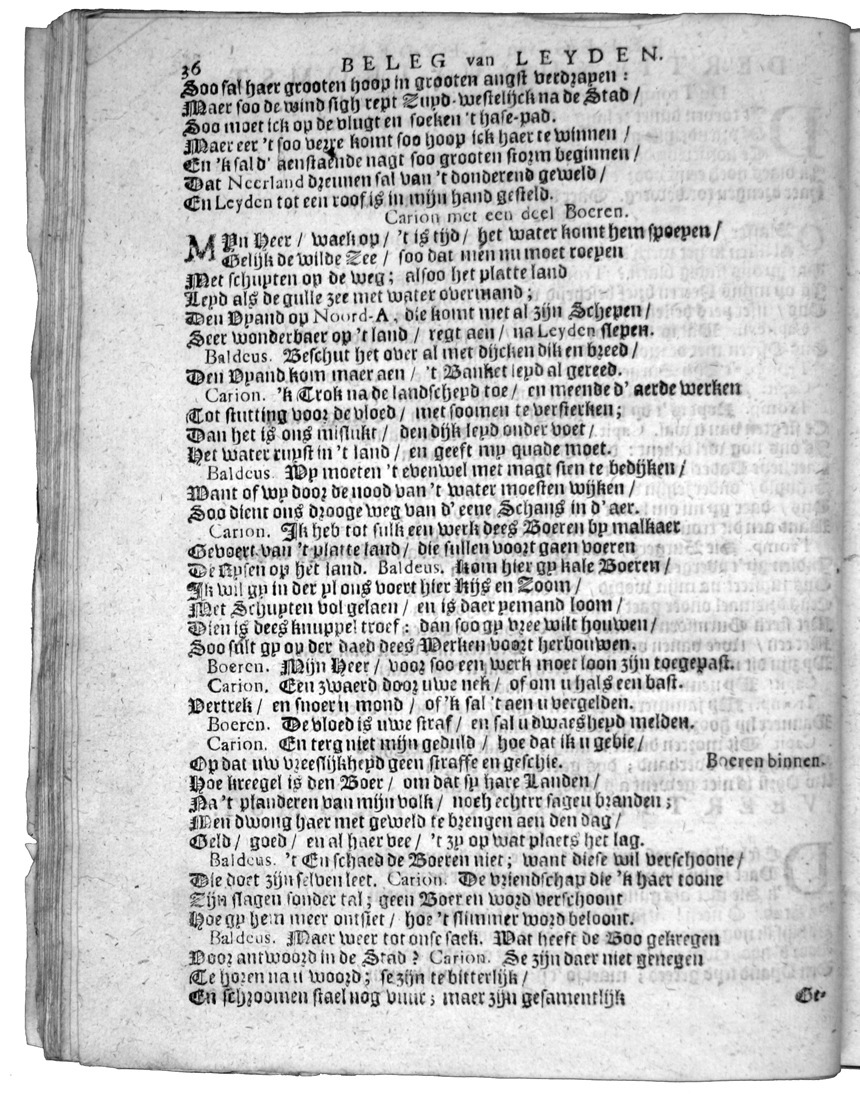 36 BELEG van LEYDEN.
Soo sal haer grooten hoop in grooten angst verdrayen:
Maer soo de wind sigh rept Zuyd-westelijck na de Stad /
Soo moet ick op de vlugt en soeken 't hase-pad.
Maer eer 't soo verre komt soo hoop ick haer te winnen /
En 'k sal d' aenstaende nagt soo grooten storm beginnen /
Dat Neerland dreunen sal van 't donderend geweld /
En Leyden tot een roof is in mijn hand gesteld.
Carion met een deel Boeren.
MYn Heer / waek op / 't is tijd / het water komt hem spoeyen /
Gelijk de wilde Zee / soo dat men nu moet roeyen
Met schuyten op de weg; alsoo het platte land
Leyd als de gulle zee met water overmand;
Den Vyand op Noord-A, die komt met al zijn Schepen /
Seer wonderbaer op 't land / regt aen / na Leyden slepen.
Baldeus. Beschut het over al met dijcken dik en breed /
Den Vyand kom maer aen / 't Banket leyd al gereed.
Carion. 'k Trok na de landscheyd toe / en meende d' aerde werken
Tot stutting voor de vloed / met soomen te versterken;
Dan het is ons mislukt / den dijk leyd onder voet /
Het water ruyst in 't land / en geeft my quade moet.
Baldeus. Wy moeten 't evenwel met magt sien te bedijken /
Want of wy door de nood van 't water moesten wijken /
Soo dient ons drooge weg van d' eene Schans in d' aer.
Carion. Ik heb tot sulk een werk dees Boeren by malkaer
Gevoert van 't platte land / die sullen voort gaen voeren
De Rysen op het land. Baldeus. kom hier gy kale Boeren /
Ik wil gy in der yl ons voert hier Rijs en Zoom /
Met Schuyten vol gelaen / en is daer yemand loom /
Dien is dees knuppel troef: dan soo gy vree wilt houwen /
Soo sult gy op der daed dees Werken voort herbouwen.
Boeren. Mijn Heer / voor soo een werk moet loon zijn toegepast.
Carion. Een zwaerd door uwe nek / of om u hals een bast.
Vertrek / en snoer u mond / of 'k sal 't aen u vergelden.
Boeren. De vloed is uwe straf / en sal u dwaesheyd melden.
Carion. En terg niet mijn geduld / hoe dat ik u gebie /
Op dat uw vreeslijkheyd geen straffe en geschie. Boeren binnen.
Hoe kreegel is den Boer / om dat sy hare Landen /
Na 't planderen van mijn volk / noch echter sagen branden;
Men dwong haer met geweld te brengen aen den dag /
Geld / goed / en al haer vee / 't zy op wat plaets het lag.
Baldeus. 't En schaed de Boeren niet; want diese wil verschoone /
Die doet zijn selven leet. Carion. De vriendschap die 'k haer toone
Zijn slagen sonder tal; geen Boer en word verschoont
Hoe gy hem meer ontsiet / hoe 't slimmer word beloont.
Baldeus. Maer weer tot onse saek. Wat heeft de Boo gekregen
Voor antwoord in de Stad? Carion. Se zijn daer niet genegen
Te horen na u woord; se zijn te bitterlijk /
En schroomen stael nog vuur; maer zijn gesamentlijk
Ge-